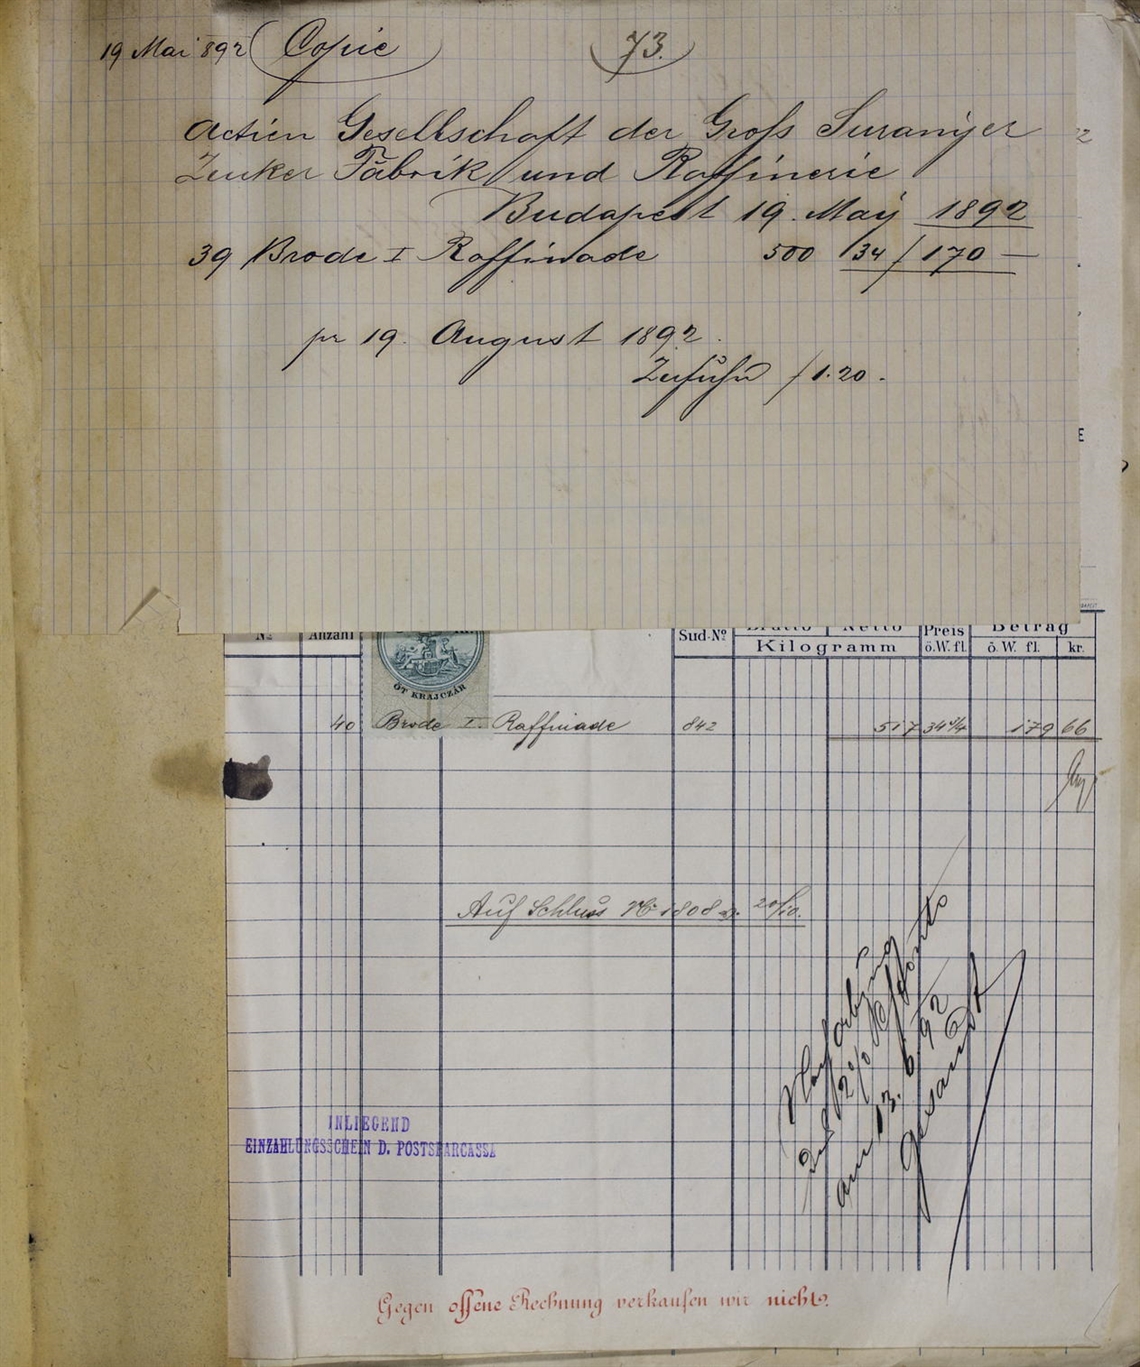 19 Mai 892 Copie 73.
Actien Gesellschaft der Gross Suranyer
Zuker Fabrik und Raffinerie
Budapest 19. May 1892
39 Brode I Raffinade 500 34 / 170 —
pr 19. August 1892.
Zufuhr / 1.20.
No Anzahl Sud-No Brutto Netto Preis Betrag
Kilogramm ö.W.fl. ö.W. fl. kr.
ÖT KRAJCZÁR
40 Brode I. Raffinade 842 517 34 3/4 179 66
Auf Schluss No 1808 20/10.
2% Sconto
am 13. 6. 92
gesandt
INLIEGEND
EINZAHLUNGSSCHEIN D. POSTSPARCASSA
Gegen offene Rechnung verkaufen wir nicht.